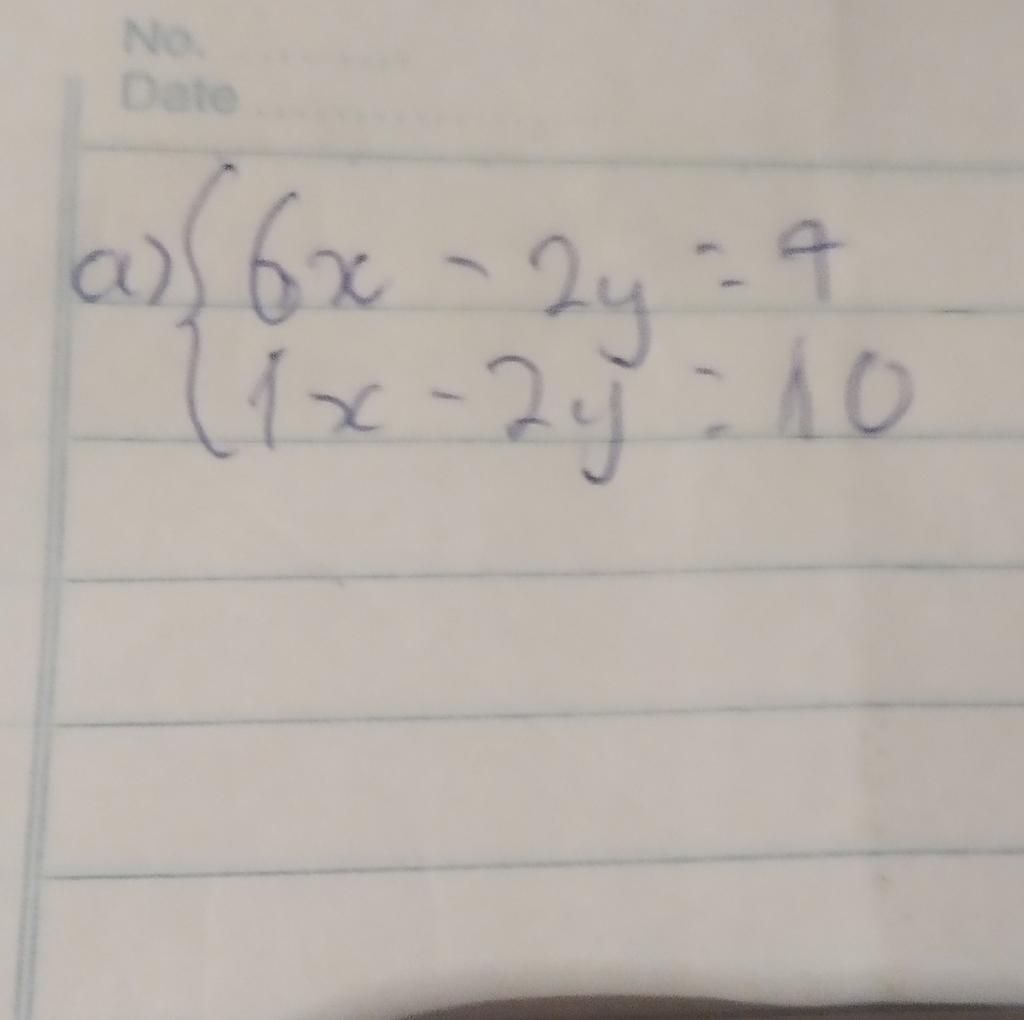 No.
Date
a) { 6x - 2y = 4
1x - 2y = 10